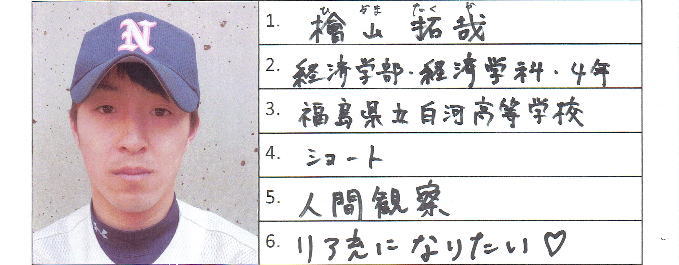 N
ひ やま たく や
1. 檜山 拓哉
2. 経済学部・経済学科・4年
3. 福島県立白河高等学校
4. ショート
5. 人間観察
6. リア充になりたい♡